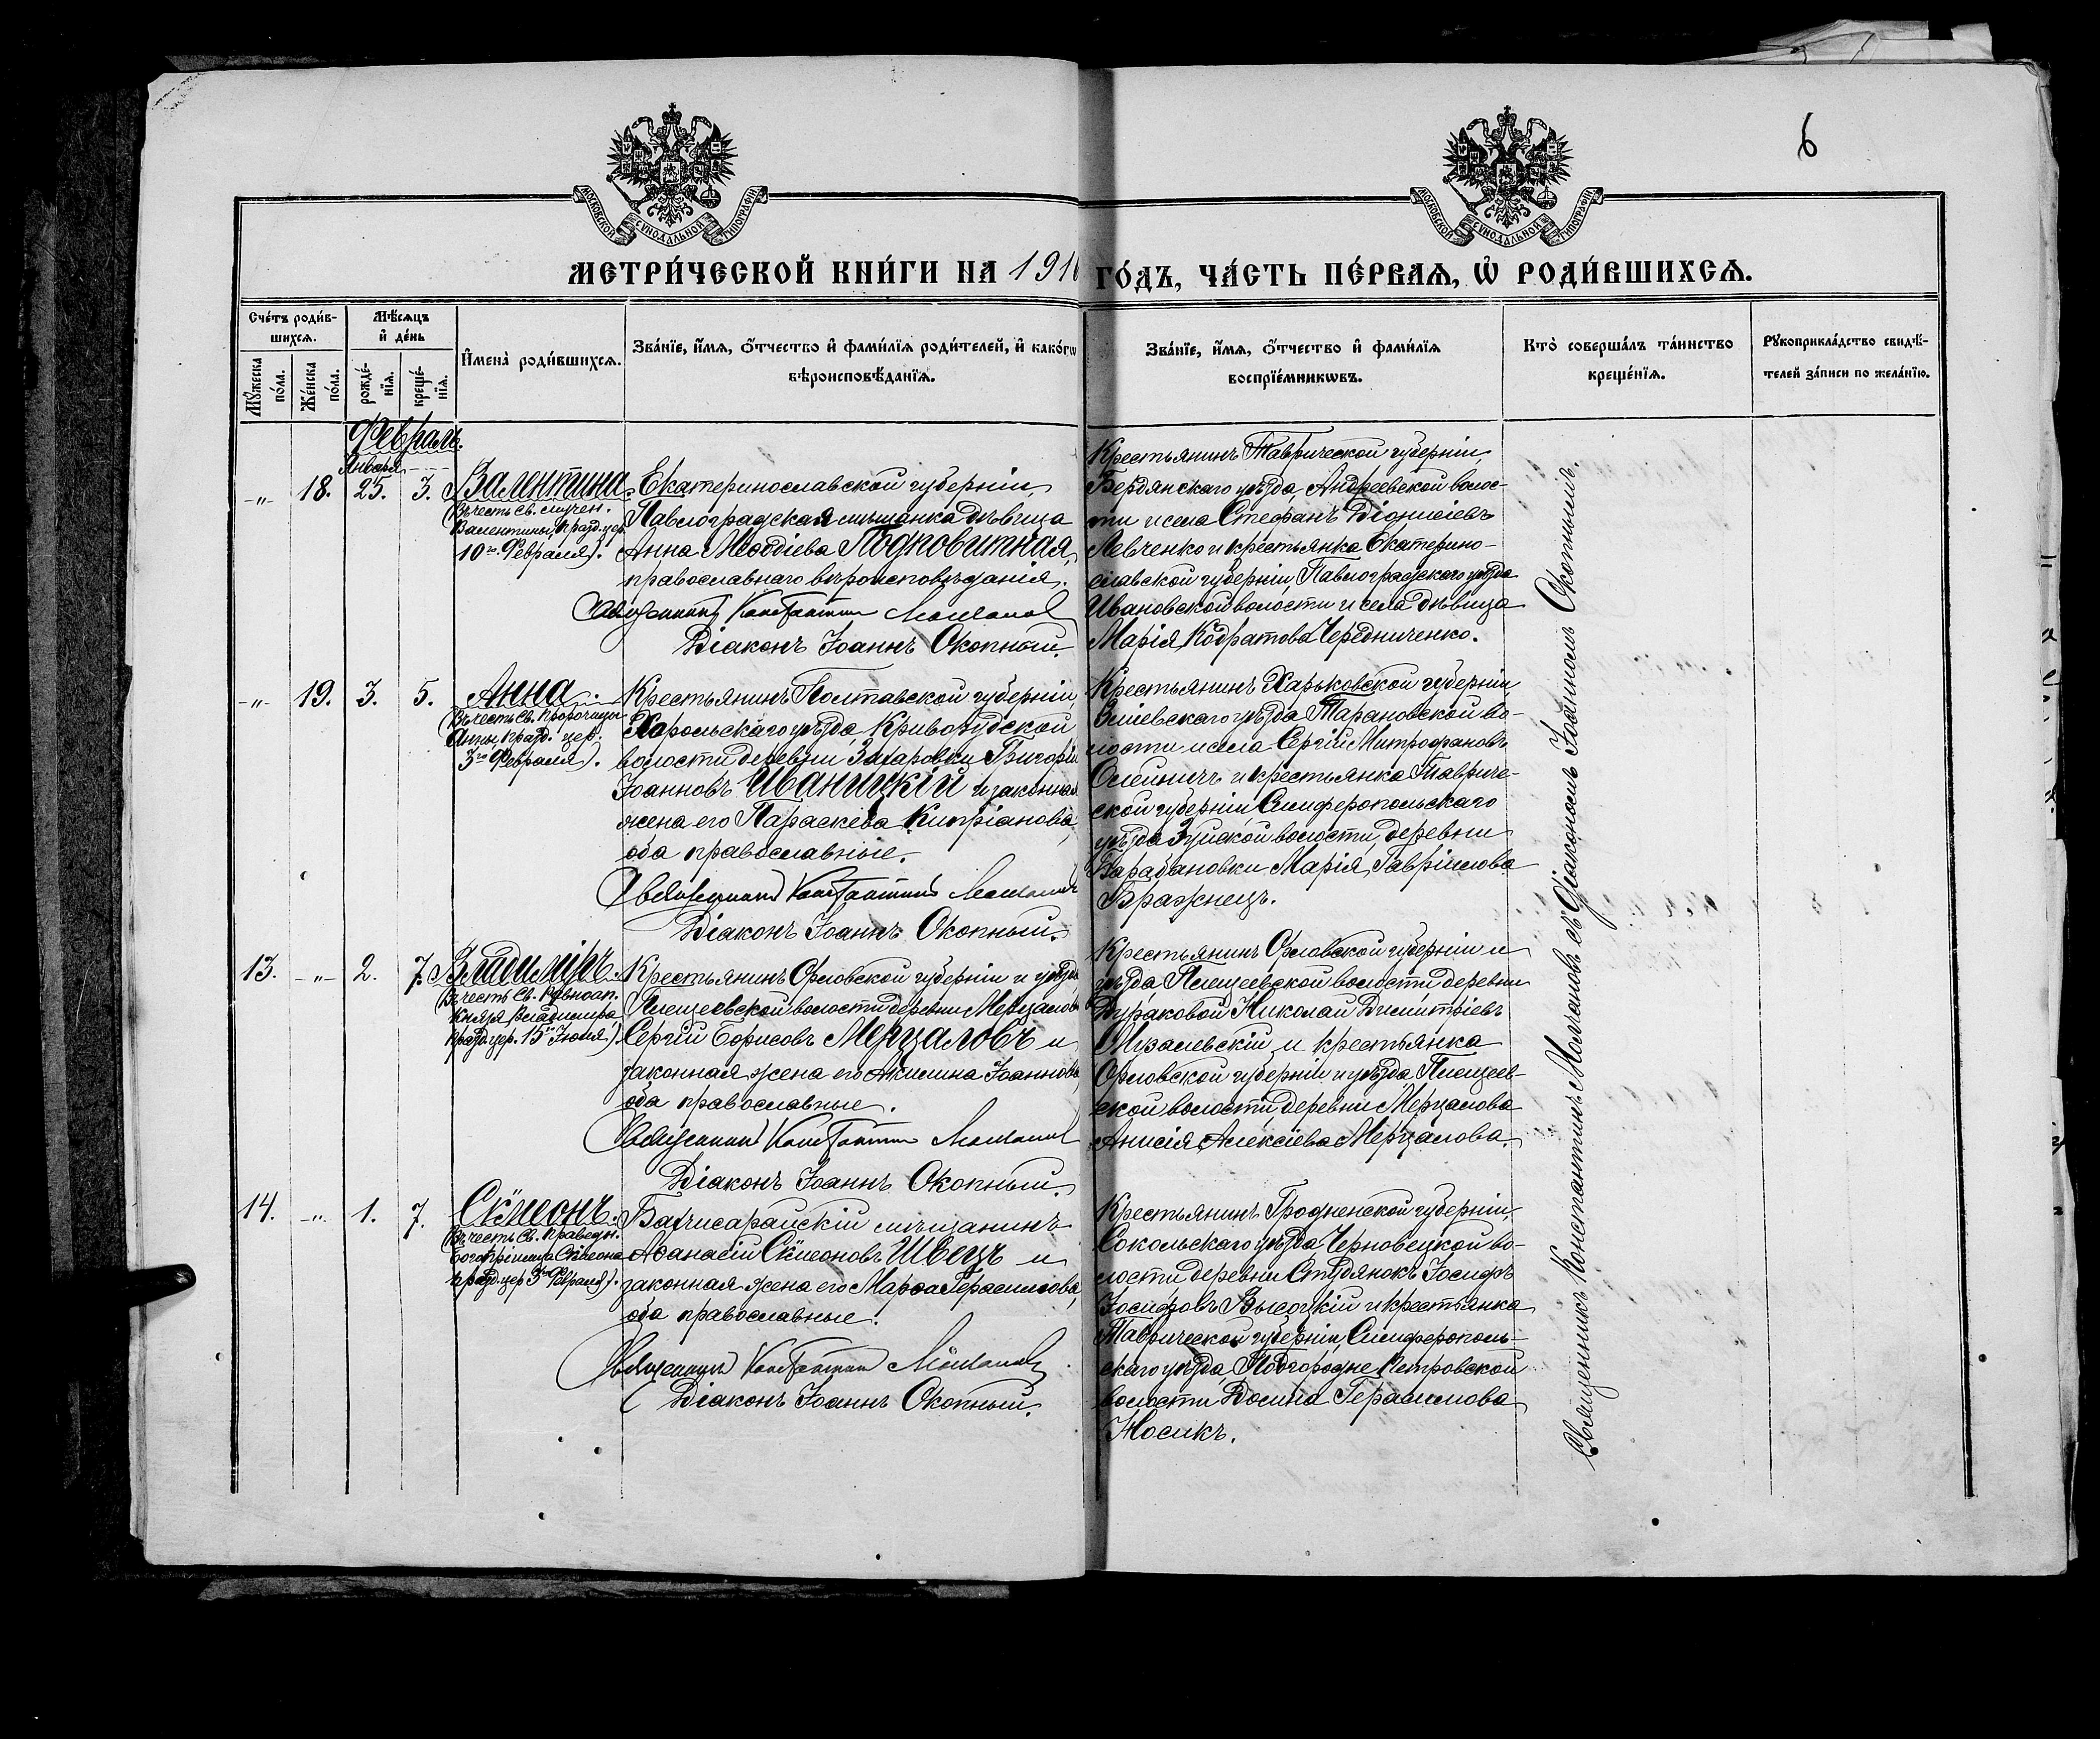 6
МОСКОВСКОЙ СУНОДАЛЬНОЙ ТИПОГРАФІИ
МОСКОВСКОЙ СУНОДАЛЬНОЙ ТИПОГРАФІИ
МЕТРИ́ЧЕСКОЙ КНИ́ГИ НА 1916 ГО́ДЪ, ЧА́СТЬ ПЕ́РВАЯ, Ѡ РОДИ́ВШИХСЯ.
Сче́тъ роди́в-
шихся.
Мꙋ́жеска по́ла.
Же́нска по́ла.
Мѣ́сяцъ
и҆ де́нь
рожде́-
нїя.
креще́-
нїя.
И҆мена̀ роди́вшихся.
Зва́нїе, и҆́мя, ѻ҆́тчество и҆ фами́лїя роди́телей, и҆ како́гѡ
вѣроисповѣ́данїя.
Зва́нїе, и҆́мя, ѻ҆́тчество и҆ фами́лїя
воспрїе́мникѡвъ.
Кто̀ соверша́лъ та́инство
креще́нїя.
Рꙋкоприкла́дство свидѣ́-
телей за́писи по жела́нїю.
Февраль.
Января
-"- 18. 25. 3. Валентина
(Въ честь Св. мучен.
Валентины, празд. цер.
10го Февраля).
Екатеринославской губерніи,
Павлоградская мѣщанка дѣвица
Анна Меѳодіева Подковитная,
православнаго вѣроисповѣданія.
Священникъ Константинъ Молчановъ
Діаконъ Іоаннъ Окопный.
Крестьянинъ Таврической губерніи,
Бердянскаго уѣзда, Андреевской волос-
ти и села Стефанъ Діонисіевъ
Левченко и крестьянка Екатерино-
славской губерніи, Павлоградскаго уѣзда
Ивановской волости и села дѣвица
Марія Кодратова Чередниченко.
-"- 19. 3. 5. Анна.
(Въ честь Св. Пророчицы
Анны празд. цер.
3го Февраля).
Крестьянинъ Полтавской губерніи,
Хорольскаго уѣзда, Криворудской
волости деревни Захаровки Григорій
Іоанновъ Иваницкій и законная
жена его Параскева Кипріанова,
оба православные.
Священникъ Константинъ Молчановъ
Діаконъ Іоаннъ Окопный.
Крестьянинъ Харьковской губерніи
Зміевскаго уѣзда, Тарановской во-
лости и села Сергій Митрофановъ
Олейничъ и крестьянка Тавриче-
ской губерніи, Симферопольскаго
уѣзда Зуйской волости, деревни
Барабановки Марія Гавріилова
Бражнецъ.
13. -"- 2. 7. Владиміръ.
(Въ честь Св. Равноап.
Князя Владимира
празд. цер. 15го Іюля).
Крестьянинъ Орловской губерніи и уѣзда,
Плещеевской волости деревни Мерцалова
Сергій Борисовъ Мерцаловъ и
законная жена его Акилина Іоаннова
оба православные.
Священникъ Константинъ Молчановъ
Діаконъ Іоаннъ Окопный.
Крестьянинъ Орловской губерніи и
уѣзда, Плещеевской волости деревни
Дураковой Николай Димитріевъ
Музалевскій и крестьянка
Орловской губерніи и уѣзда Плещеев-
ской волости, деревни Мерцалова
Анисія Алексіева Мерцалова.
14. -"- 1. 7. Сѵмеонъ.
(Въ честь Св. праведн.
Богопріимца Сѵмеона
празд. цер. 3го Февраля).
Бахчисарайскій мѣщанинъ
Аѳанасій Сѵмеоновъ Швецъ и
законная жена его Марѳа Герасимова,
оба православные.
Священникъ Константинъ Молчановъ
Діаконъ Іоаннъ Окопный.
Крестьянинъ Гродненской губерніи,
Сокольскаго уѣзда, Черновецкой во-
лости деревни Студянокъ Іосифъ
Іосифовъ Высоцкій и крестьянка
Таврической губерніи, Симферополь-
скаго уѣзда, Подгородне Петровской
волости Домна Герасимова
Носикъ.
Священникъ Константинъ Молчановъ съ діакономъ Іоанномъ Окопнымъ.